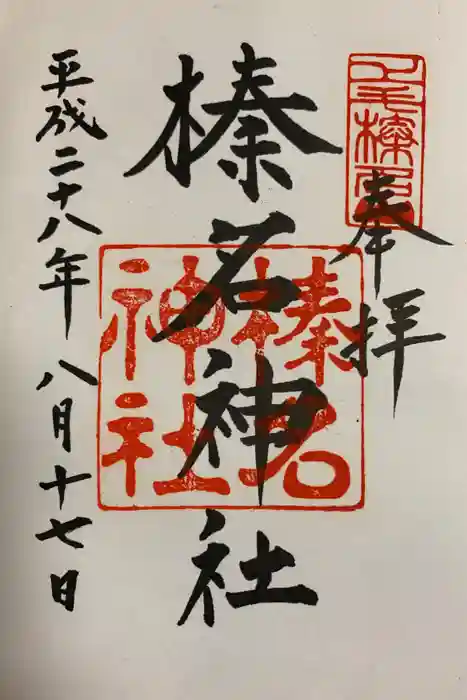 奉拝
上毛榛名
榛名神社
榛名神社
平成二十八年 八月十七日